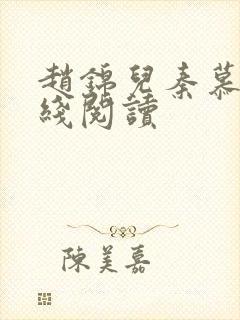 趙錦兒秦慕
綫閱讀
陳美嘉